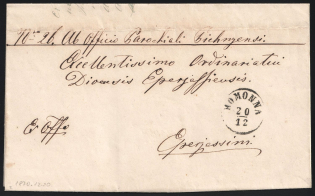 Nro 26. Ab Officio Parochiali Czichnyensi.
Excellentissimo Ordinariatui
Dioecesis Eperjessiensis.
HOMONNA
20
12
Ex Offo
Eperjessini.